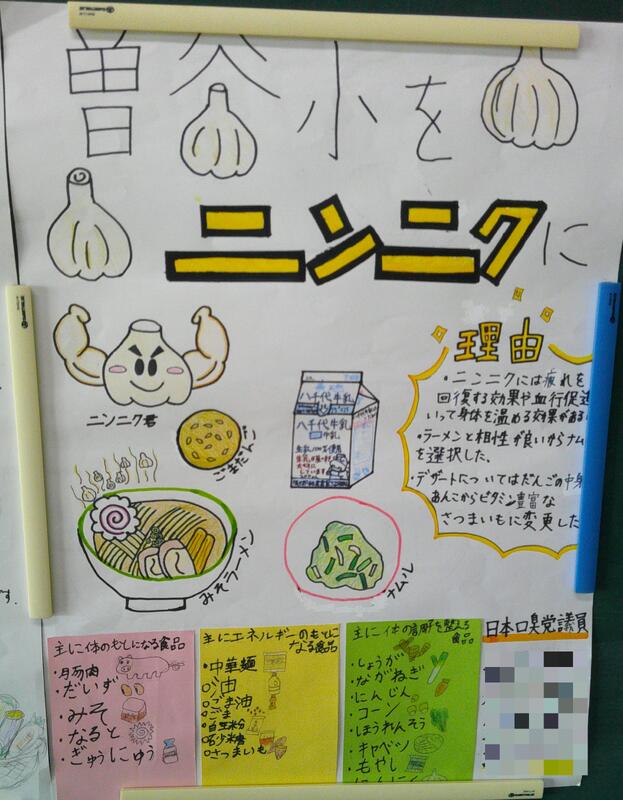 曽谷小を
ニンニクに
理由
・ニンニクには疲れを
回復する効果や血行促進
いって身体を温める効果がある
・ラーメンと相性が良いがナム
を選択した。
・デザートについてはだんごの中身
あんこからビタミン豊富な
さつまいもに変更した
ニンニク君
ごまだんご
八千代牛乳
八千代牛乳
牛乳
みそラーメン
ナムル
主に体のもとになる食品
・豚肉
・だいず
・みそ
・なると
・ぎゅうにゅう
主にエネルギーのもとに
なる食品
・中華麺
・油
・ごま油
・ごま
・白玉粉
・砂糖
・さつまいも
主に体の調子を整える
食品
・しょうが
・ながねぎ
・にんじん
・コーン
・ほうれんそう
・キャベツ
・もやし
日本口臭党議員